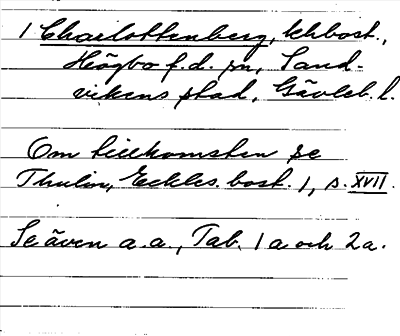 1 Charlottenberg, khbost.,
Högbo f.d. sn, Sand-
vikens stad, Gävleb. l.
Om tillkomsten se
Thulin, Eckles. bost. 1, s. XVII.
Se även a.a., Tab. 1a och 2a.